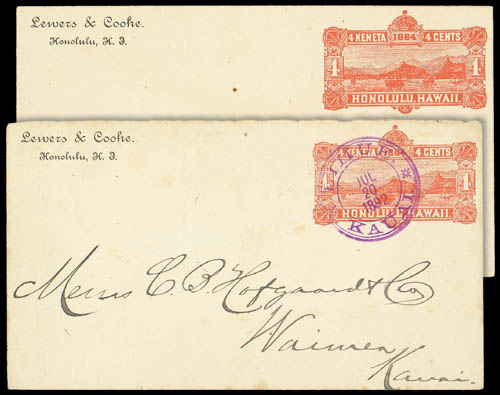 Lewers & Cooke.
Honolulu, H. I.
4 KENETA 1884 4 CENTS
4 4
HONOLULU, HAWAII.
Lewers & Cooke.
Honolulu, H. I.
4 KENETA 1884 4 CENTS
4 4
HONOLULU, HAWAII.
LIHUE
JUL
20
1892
KAUAI
Messrs C. B. Hofgaard & Co
Waimea
Kauai.